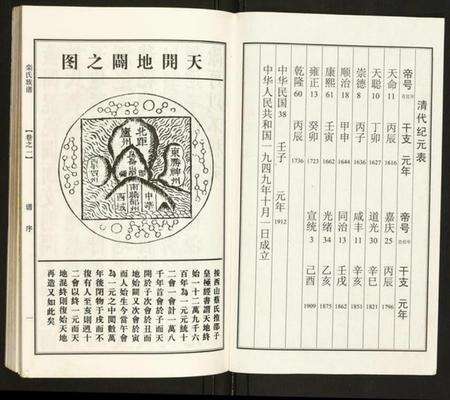 清代纪元表
帝号 干支 元年
天命 11 丙辰 1616
天聪 10 丁卯 1627
崇德 8 丙子 1636
顺治 18 甲申 1644
康熙 61 壬寅 1662
雍正 13 癸卯 1723
乾隆 60 丙辰 1736
帝号 干支 元年
嘉庆 25 丙辰 1796
道光 30 辛巳 1821
咸丰 11 辛亥 1851
同治 13 壬戌 1862
光绪 34 乙亥 1875
宣统 3 己酉 1909
中华民国 38 壬子 元年 1912
中华人民共和国一九四九年十月一日成立
天開地闢之图
北距
廬州
東勝神州
南贍部州
中華
西域
按西山蔡氏推邵子
皇極經書謂天地終
始一十二萬九千六
百年為一元元統十
二會一會計一萬八
千年首會於子而天
開於子次會於丑而
地始闢又次會於寅
而人始生今當午會
為一元之中間數萬
年後閉物于戌而不
復有人至亥則廻十
二會以終一元而天
地混終則復始天地
再造又如此矣
氏族谱
卷之一
谱序
一